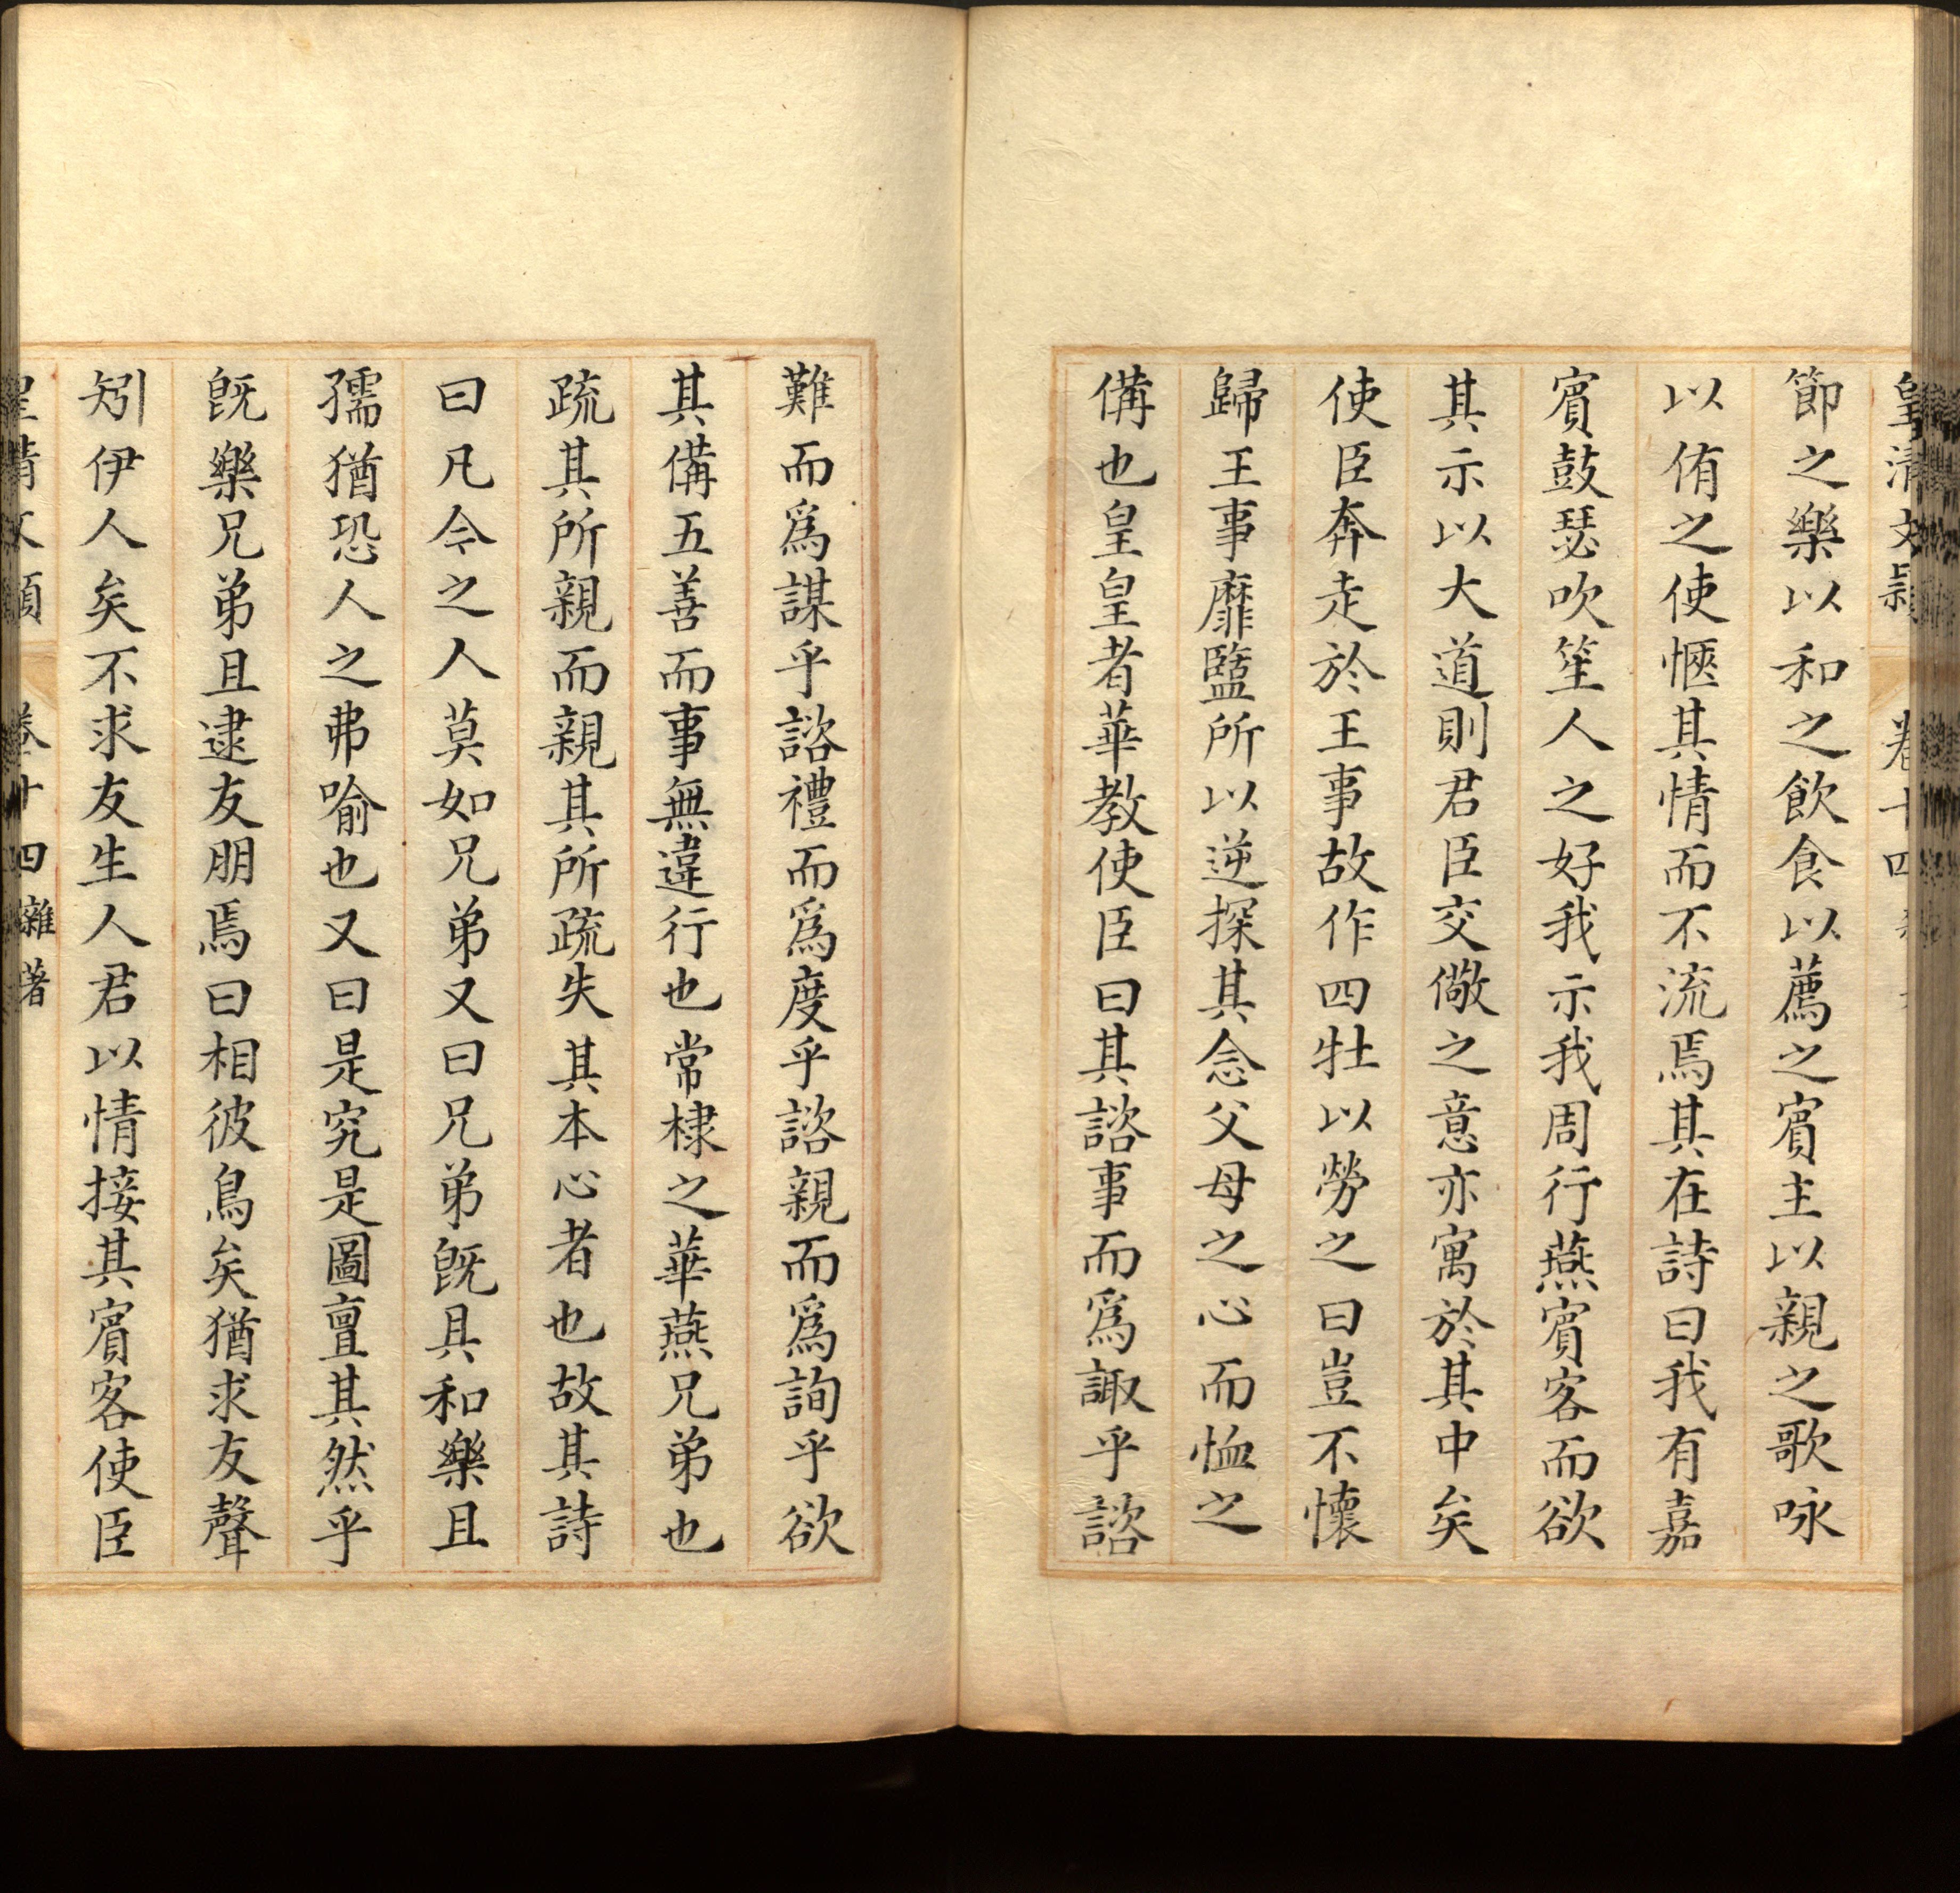 皇清文穎　卷十四
節之樂以和之飲食以薦之賓主以親之歌咏
以侑之使愜其情而不流焉其在詩曰我有嘉
賓鼓瑟吹笙人之好我示我周行燕賓客而欲
其示以大道則君臣交儆之意亦寓於其中矣
使臣奔走於王事故作四牡以勞之曰豈不懷
歸王事靡盬所以逆探其念父母之心而恤之
備也皇皇者華教使臣曰其諮事而爲諏乎諮
難而爲謀乎諮禮而爲度乎諮親而爲詢乎欲
其備五善而事無違行也常棣之華燕兄弟也
疏其所親而親其所疏失其本心者也故其詩
曰凡今之人莫如兄弟又曰兄弟旣具和樂且
孺猶恐人之弗喻也又曰是究是圖亶其然乎
旣樂兄弟且逮友朋焉曰相彼鳥矣猶求友聲
矧伊人矣不求友生人君以情接其賓客使臣
皇清文穎　卷十四雜著